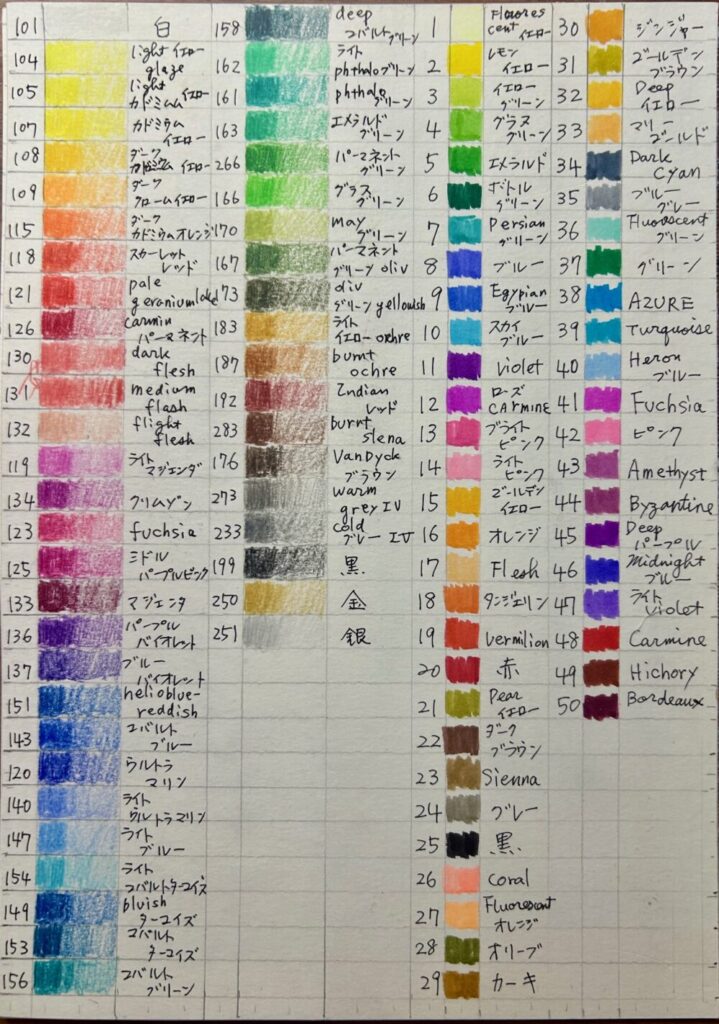 101 白
104 light イエロー
glaze
105 light イエロー
カドミウム
107 カドミウム
イエロー
108 ダーク
カドミウム イエロー
109 ダーク
クロームイエロー
115 ダーク
カドミウムオレンジ
118 スカーレット
レッド
121 pale
geraniumlake
126 carmin
パーマネント
130 dark
flesh
131 medium
flash
132 flight
flesh
119 ライト
マジェンダ
134 クリムゾン
123 fuchsia
125 ミドル
パープルピンク
133 マジェンタ
136 パープル
バイオレット
137 ブルー
バイオレット
151 helioblue-
reddish
143 コバルト
ブルー
120 ウルトラ
マリン
140 ライト
ウルトラマリン
147 ライト
ブルー
154 ライト
コバルトターコイズ
149 bluish
ターコイズ
153 コバルト
ターコイズ
156 コバルト
グリーン
158 deep
コバルトグリーン
162 ライト
phthaloグリーン
161 phthalo
グリーン
163 エメラルド
グリーン
266 パーマネント
グリーン
166 グラス
グリーン
170 may
グリーン
167 パーマネント
グリーン oliv
173 oliv
グリーン yellowish
183 ライト
イエロー ochre
187 burnt
ochre
192 Indian
レッド
283 burnt
siena
176 VanDyck
ブラウン
273 warm
grey IV
233 cold
グレー IV
199 黒
250 金
251 銀
1 Fluores
cent イエロー
2 レモン
イエロー
3 イエロー
グリーン
4 グラス
グリーン
5 エメラルド
6 ボトル
グリーン
7 Persian
グリーン
8 ブルー
9 Egypian
ブルー
10 スカイ
ブルー
11 violet
12 ローズ
CARMINE
13 ブライト
ピンク
14 ライト
ピンク
15 ゴールデン
イエロー
16 オレンジ
17 Flesh
18 タンジェリン
19 vermilion
20 赤
21 Pear
イエロー
22 ダーク
ブラウン
23 Sienna
24 グレー
25 黒
26 coral
27 Fluorescent
オレンジ
28 オリーブ
29 カーキ
30 ジンジャー
31 ゴールデン
ブラウン
32 Deep
イエロー
33 マリー
ゴールド
34 Dark
Cyan
35 ブルー
グレー
36 Fluorescent
グリーン
37 グリーン
38 AZURE
39 Turquoise
40 Heron
ブルー
41 Fuchsia
42 ピンク
43 Amethyst
44 Byzantine
45 Deep
パープル
46 Midnight
ブルー
47 ライト
violet
48 Carmine
49 Hichory
50 Bordeaux